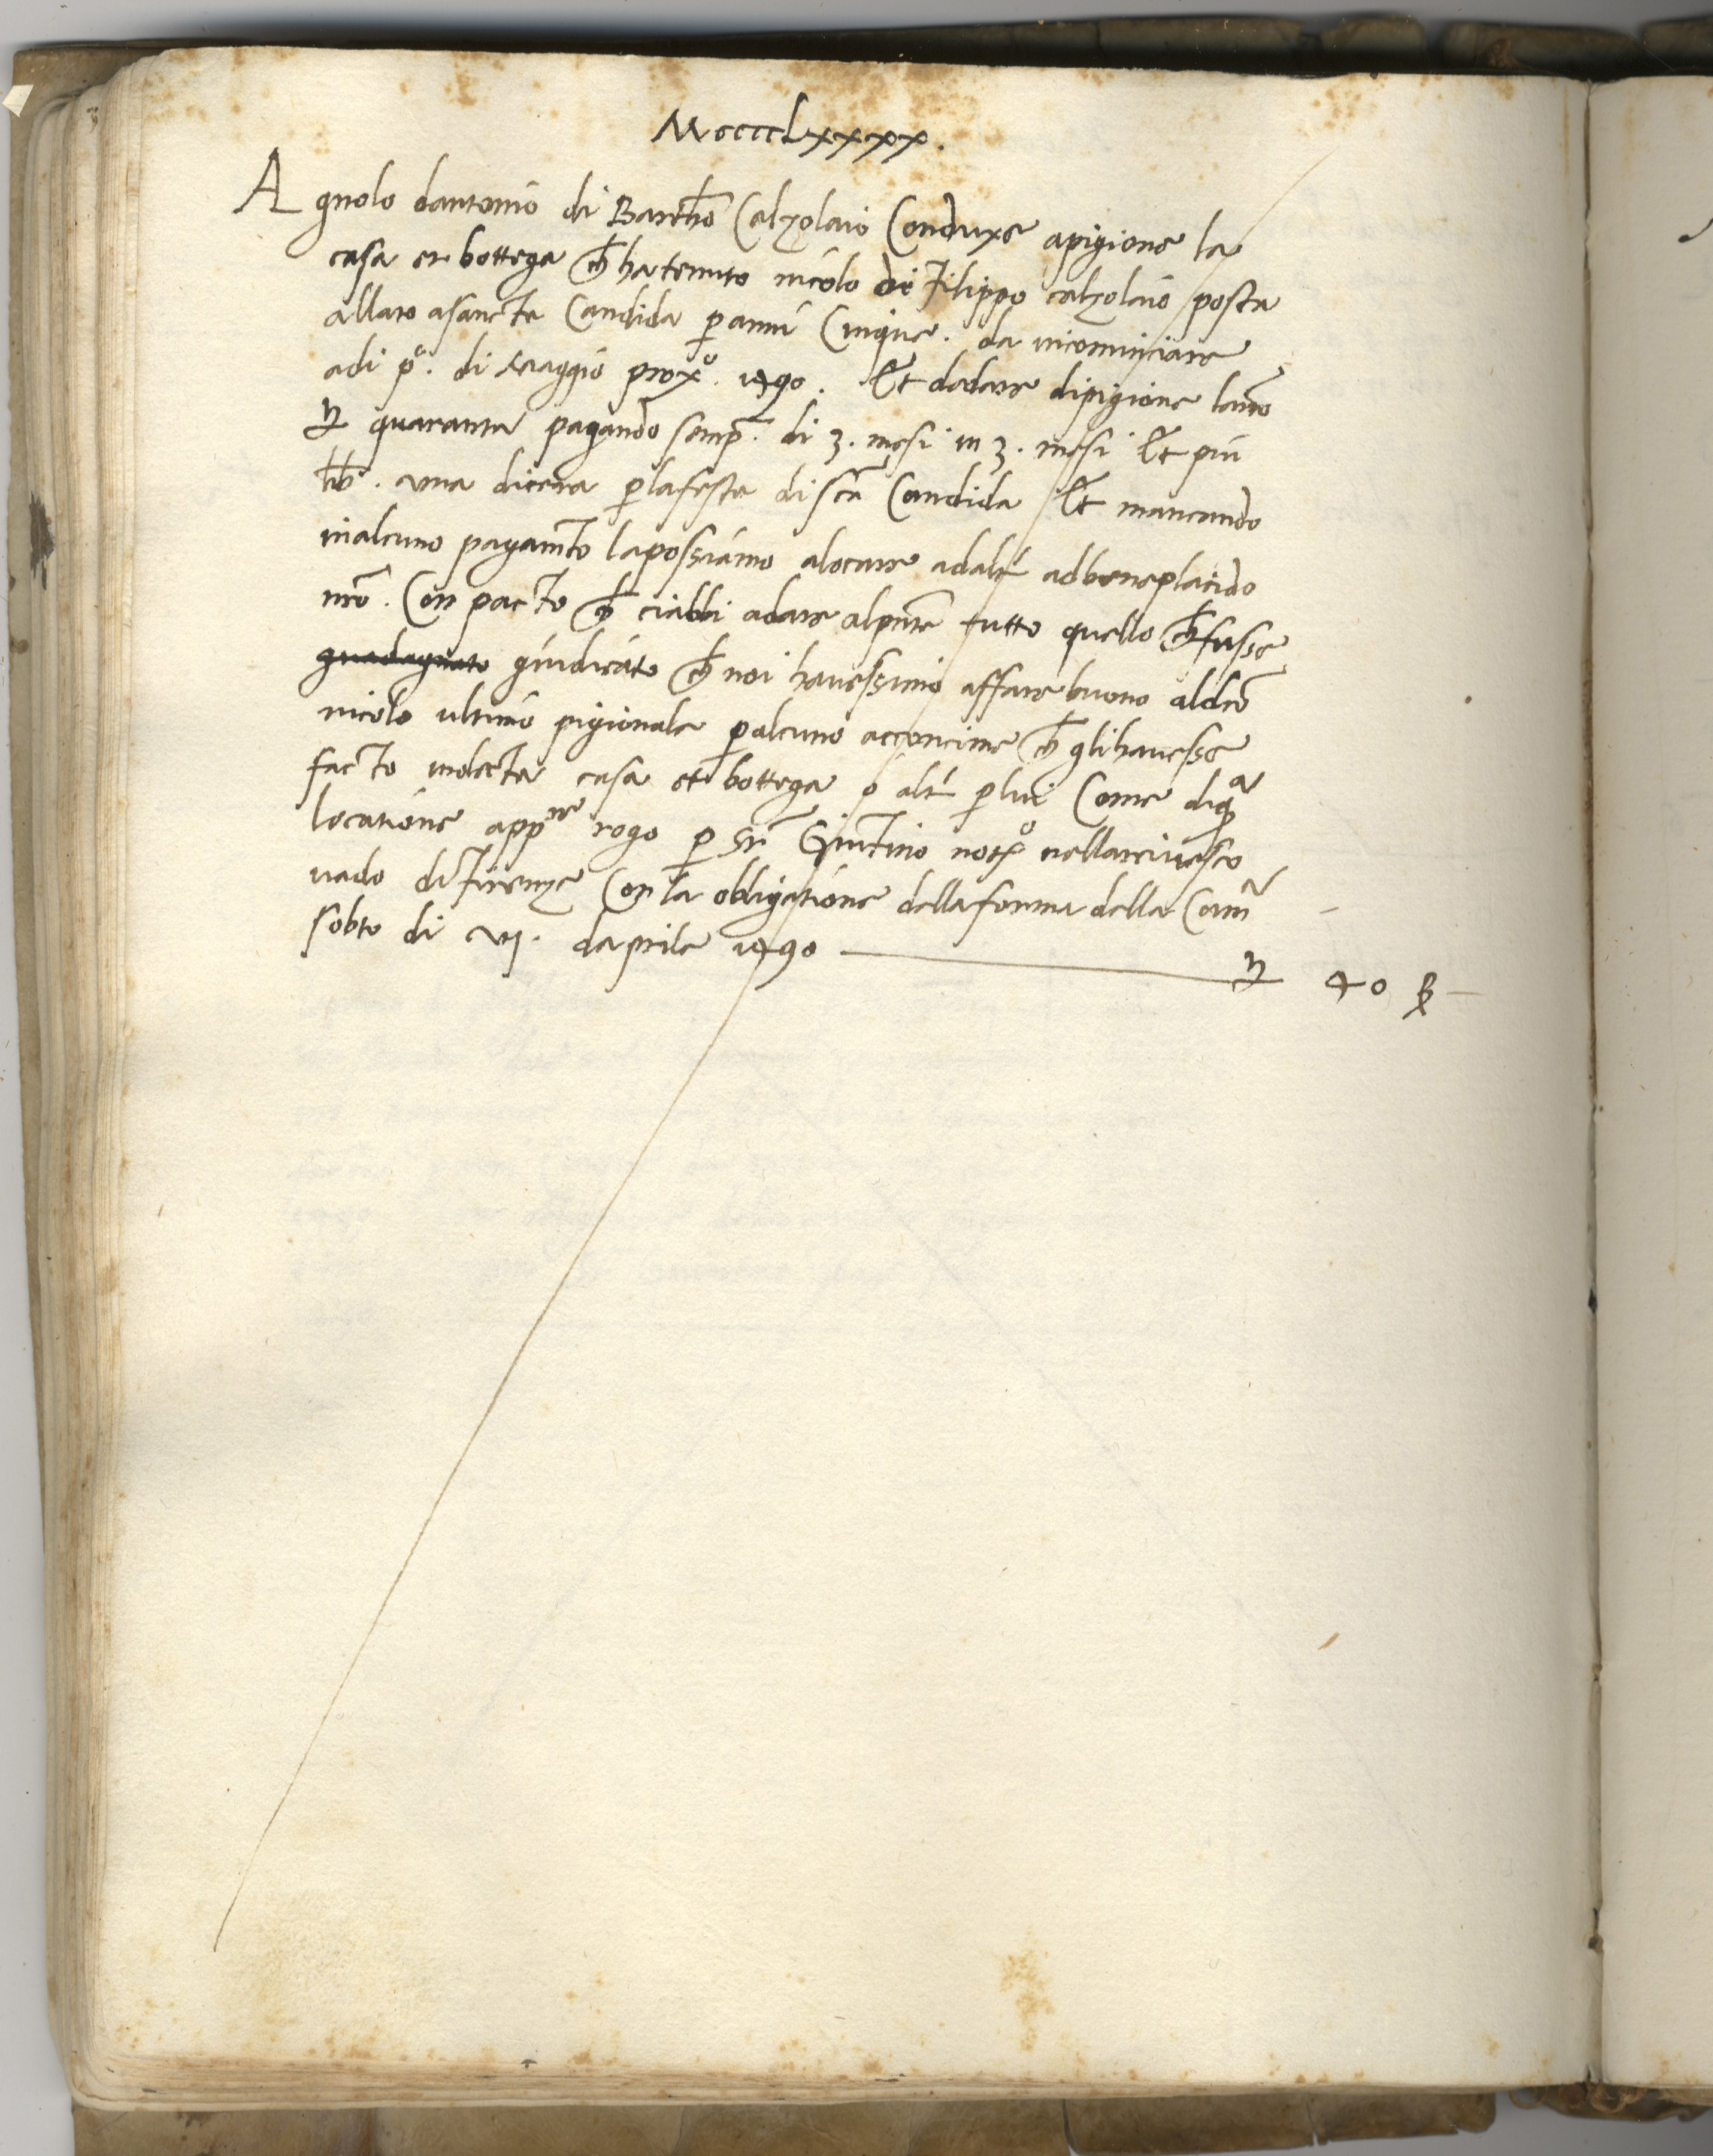 MccccLxxxx.
Agnolo dantonio di Barth̅o Calzolaio Conduxe apigione la
casa et bottega ch̅ ha tenuto nicolo di Filippo calzolaio posta
allato asancta Candida p̱ anni Cinque. da incominciare
adi po. di Maggio proxo. 1490. Et dadare dipigione lanno
quaranta pagando semp̅. di 3. mesi in 3. mesi Et piu
lib̅. una dicera p̱ lafesta di sc̅a Candida Et mancando
inalcuno pagam̅to lapossiamo alocare adalt̅ adbeneplacido
nr̅o. Con pacto ch̅ ciabbi adare alpn̅te tutto quello ch̅ fusse
guadagnato giudicato ch̅ noi havessimo affare buono aldc̅o
nicolo ultimo pigionale p̱ alcuno acconcime ch̅ glihavesse
facto indecta casa et bottega o alt̅ p̱ lui Come diq̱a
locatione app̱re rogo p̱ sr̅ Giuntino noto nellarcivesco
vado di Firenze Con la obligatione dellaforma della Cam̅
sobto di vi. daprile 1490 40 ß